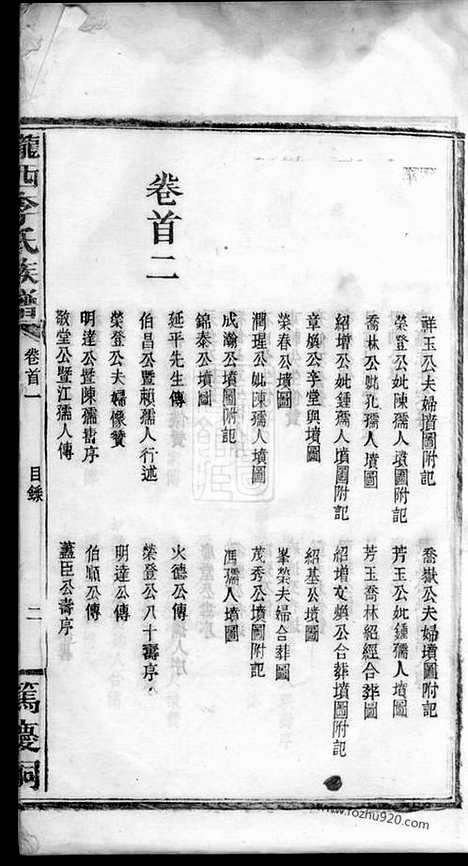 祥玉公夫婦墳圖附記 喬嶽公夫婦墳圖附記
榮登公妣陳孺人墳圖附記 芳玉公妣鍾孺人墳圖
喬林公妣孔孺人墳圖 芳玉喬林紹經合葬圖
紹增公妣鍾孺人墳圖附記 紹增文煥公合葬墳圖附記
章煥公孛堂與墳圖 紹基公墳圖
榮春公墳圖 峯榮夫婦合葬圖
潤瑆公妣陳孺人墳圖 茂秀公墳圖附記
成瀚公墳圖附記 馮孺人墳圖
錦泰公墳圖
卷首二
延平先生傳 火德公傳
伯昌公暨賴孺人行述 榮登公八十壽序
榮登公夫婦像贊 明達公傳
明達公暨陳孺壽序 伯順公傳
敬堂公暨江孺人傳 藎臣公壽序
隴西李氏族譜 卷首一 目錄 二 篤慶祠
www.rozhu920.com